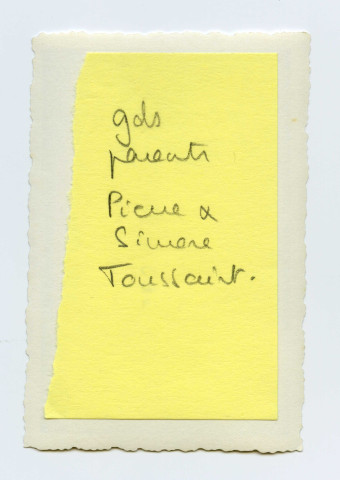 gds
parents
Pierre &
Simone
Toussaint.